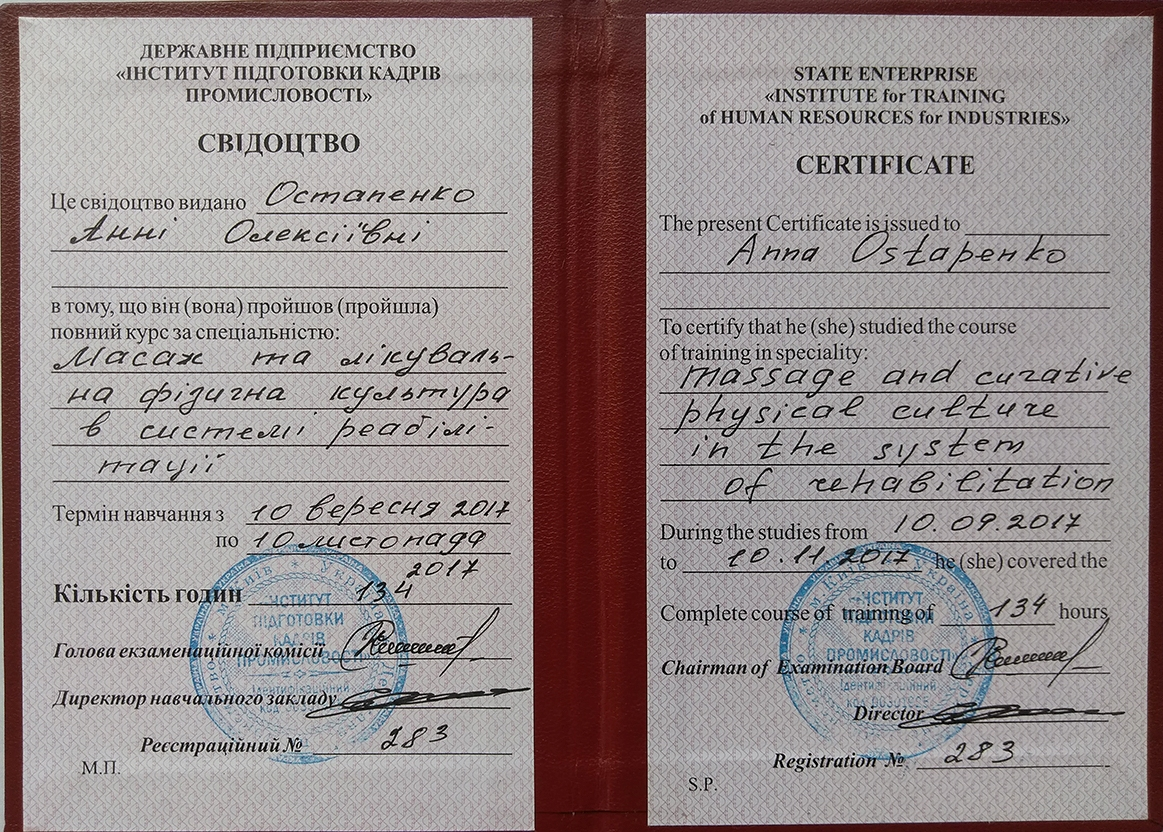 ДЕРЖАВНЕ ПІДПРИЄМСТВО
«ІНСТИТУТ ПІДГОТОВКИ КАДРІВ
ПРОМИСЛОВОСТІ»
СВІДОЦТВО
Це свідоцтво видано Остапенко
Анні Олексіївні
в тому, що він (вона) пройшов (пройшла)
повний курс за спеціальністю:
Масаж та лікуваль-
на фізична культура
в системі реабілі-
тації
Термін навчання з 10 вересня 2017
по 10 листопада
2017
Кількість годин 134
Голова екзаменаційної комісії
Директор навчального закладу
Реєстраційний № 283
М.П.
ІНСТИТУТ
ПІДГОТОВКИ
КАДРІВ
ПРОМИСЛОВОСТІ
Ідентифікаційний
код
STATE ENTERPRISE
«INSTITUTE for TRAINING
of HUMAN RESOURCES for INDUSTRIES»
CERTIFICATE
The present Certificate is issued to
Anna Ostapenko
To certify that he (she) studied the course
of training in speciality:
massage and curative
physical culture
in the system
of rehabilitation
During the studies from 10.09.2017
to 10.11.2017 he (she) covered the
Complete course of training of 134 hours
Chairman of Examination Board
Director
Registration № 283
S.P.
ІНСТИТУТ
ПІДГОТОВКИ
КАДРІВ
ПРОМИСЛОВОСТІ
Ідентифікаційний
код